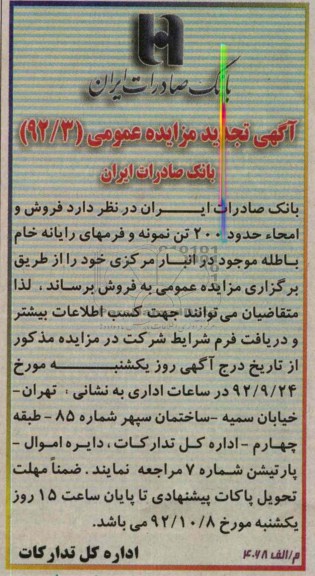 بانک صادرات ایران
آگهی تجدید مزایده عمومی (۹۲/۳)
بانک صادرات ایران
بانک صادرات ایـــــران در نظر دارد فروش و
امحاء حدود ۲۰۰ تن نمونه و فرمهای رایانه خام
باطله موجود در انبار مرکزی خود را از طریق
برگزاری مزایده عمومی به فروش برساند ، لذا
متقاضیان می توانند جهت کسب اطلاعات بیشتر
و دریافت فرم شرایط شرکت در مزایده مذکور
از تاریخ درج آگهی روز یکشنبـــــــه مورخ
۹۲/۹/۲۴ در ساعات اداری به نشانی : تهران-
خیابان سمیه -ساختمان سپهر شماره ۸۵ - طبقه
چهارم - اداره کل تدارکات ، دایره اموال -
پارتیشن شماره ۷ مراجعه نمایند . ضمناً مهلت
تحویل پاکات پیشنهادی تا پایان ساعت ۱۵ روز
یکشنبه مورخ ۹۲/۱۰/۸ می باشد.
اداره کل تدارکات
م/الف ۴۰۶۸